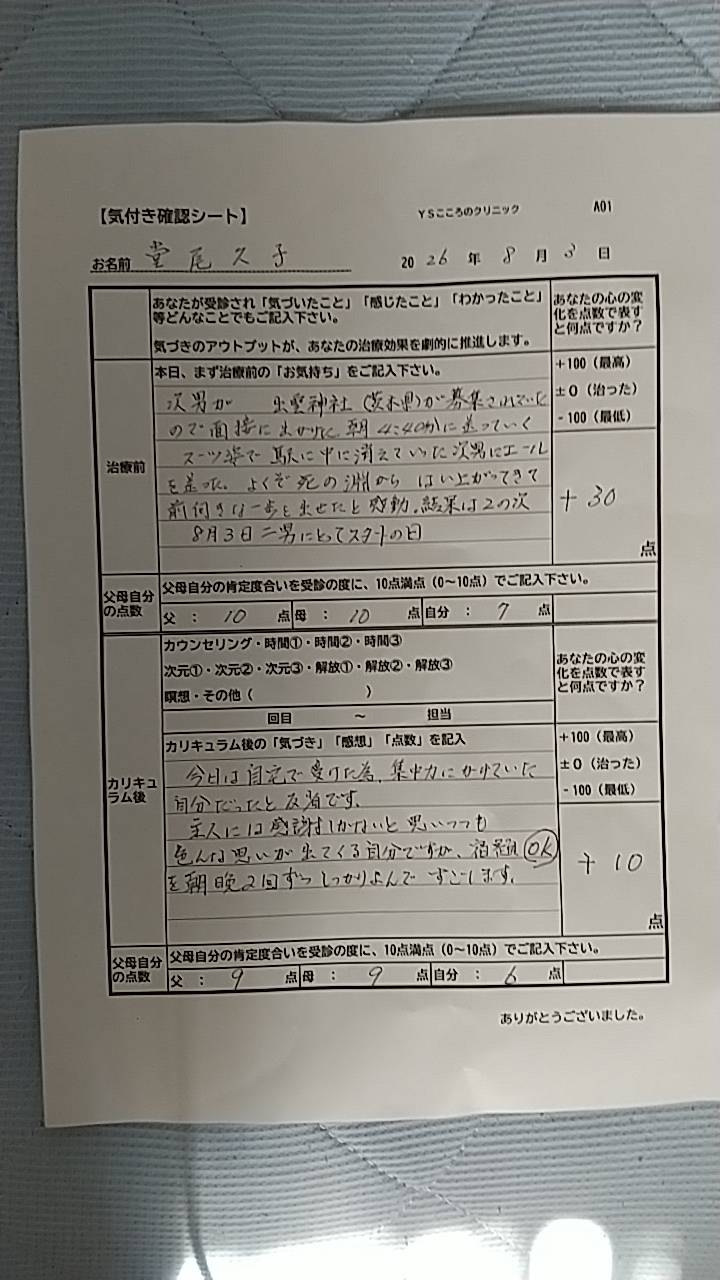 【気付き確認シート】 YSこころのクリニック A01
お名前 堂尾久子 2026年8月3日
あなたが受診され「気づいたこと」「感じたこと」「わかったこと」
等どんなことでもご記入下さい。
気づきのアウトプットが、あなたの治療効果を劇的に推進します。
あなたの心の変
化を点数で表す
と何点ですか?
治療前
本日、まず治療前の「お気持ち」をご記入下さい。
次男が 出雲神社(茨木県)が募集されていた
ので面接に出かけた 朝4:40分に送っていく
スーツ姿で駅に中に消えていった次男にエール
を送った。よくぞ死の淵から はい上がってきて
前向きな一歩を出せたと感動。結果は2の次
8月3日 二男にとってスタートの日
+100(最高)
±0(治った)
-100(最低)
+30
点
父母自分
の点数
父母自分の肯定度合いを受診の度に、10点満点(0~10点)でご記入下さい。
父 : 10 点 母 : 10 点 自分 : 7 点
カリキュ
ラム後
カウンセリング・時間①・時間②・時間③
次元①・次元②・次元③・解放①・解放②・解放③
瞑想・その他( )
回目 ~ 担当
あなたの心の変
化を点数で表す
と何点ですか?
カリキュラム後の「気づき」「感想」「点数」を記入
今日は自宅で受けた為、集中力にかけていた
自分だったと反省です。
主人には感謝しかないと思いつつも
色んな思いが出てくる自分ですが、宿題OK
を朝晩2回ずつしっかりよんですごします。
+100(最高)
±0(治った)
-100(最低)
+10
点
父母自分
の点数
父母自分の肯定度合いを受診の度に、10点満点(0~10点)でご記入下さい。
父 : 9 点 母 : 9 点 自分 : 6 点
ありがとうございました。